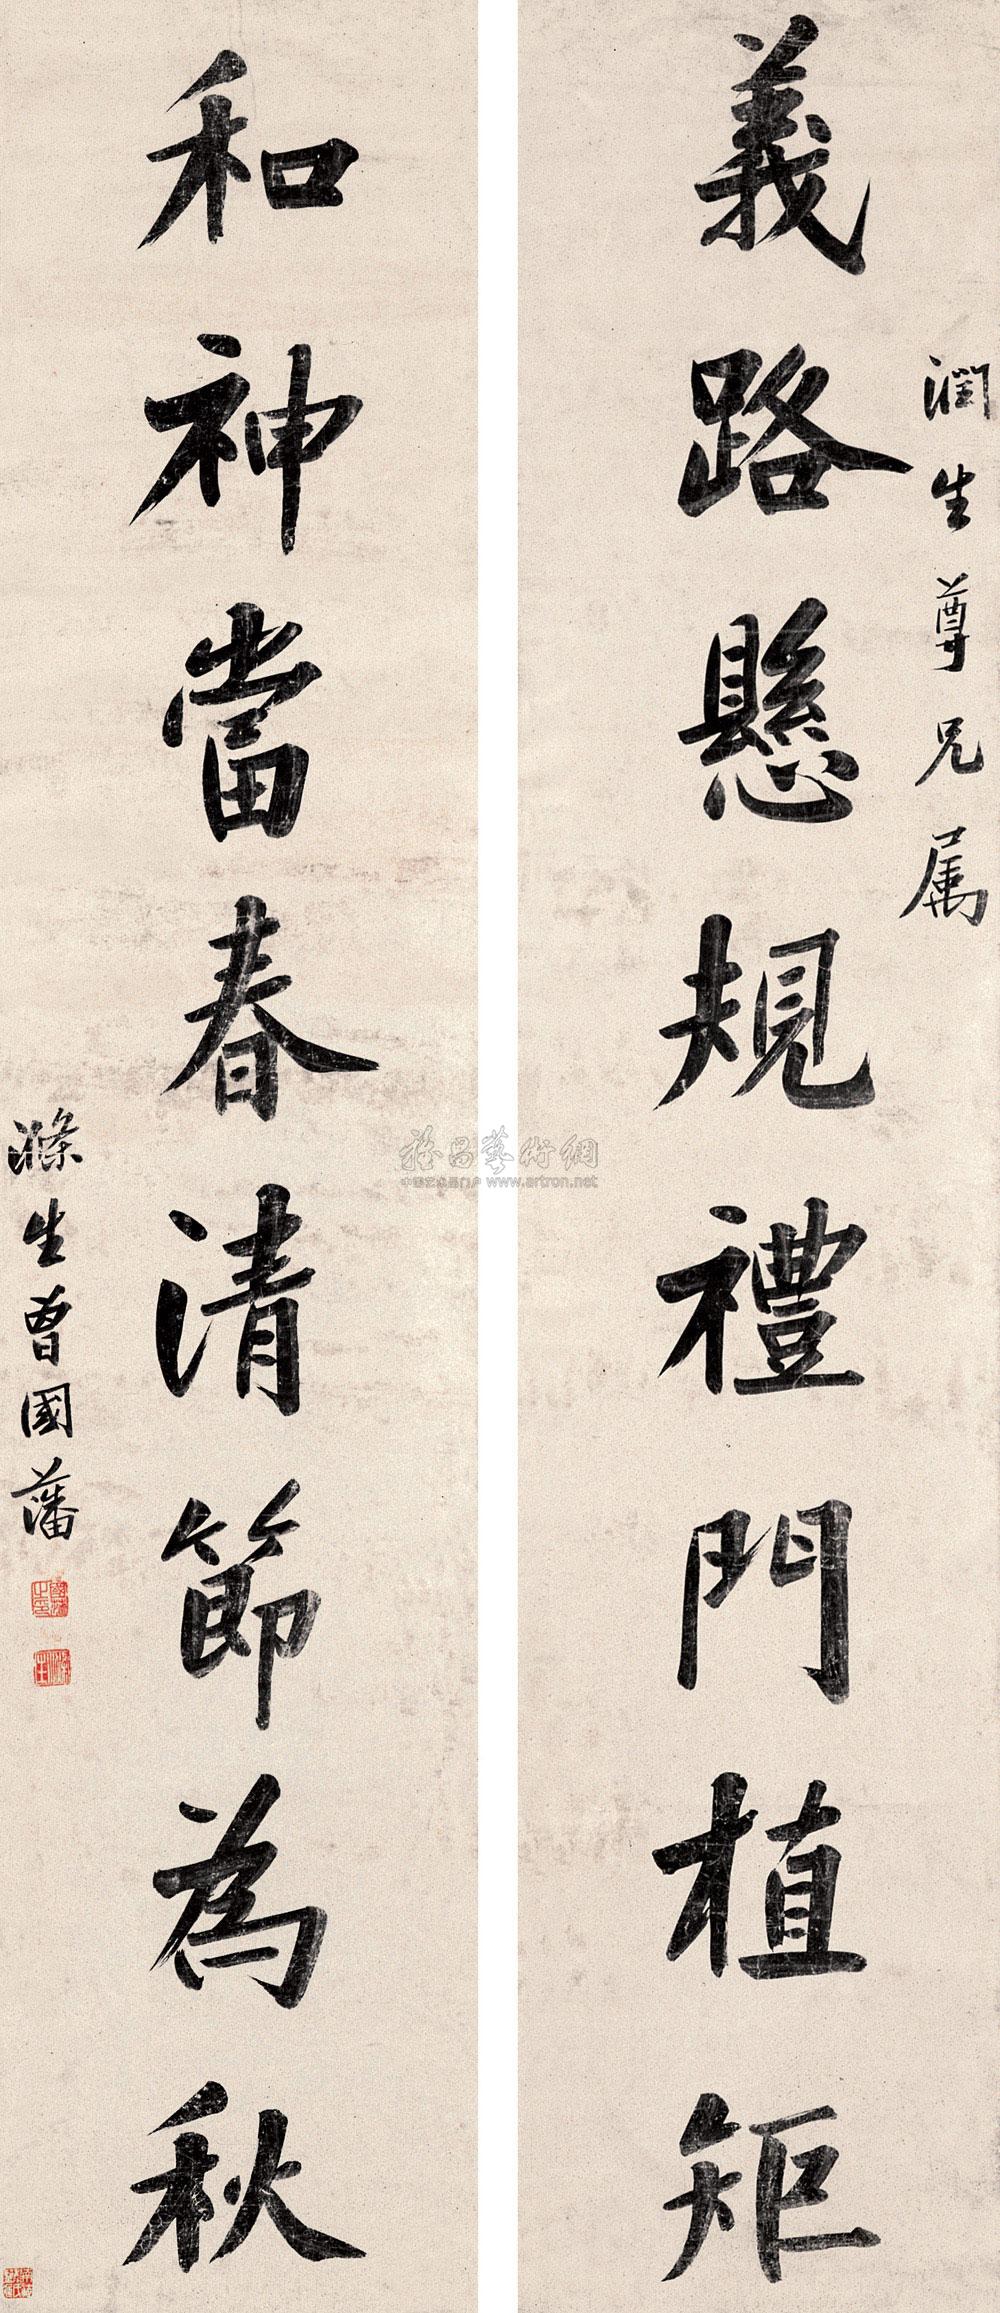 潤生尊兄属
義路懸規禮門植矩
和神當春清節為秋
滌生曾國藩
雅昌藝術網
www.artron.net